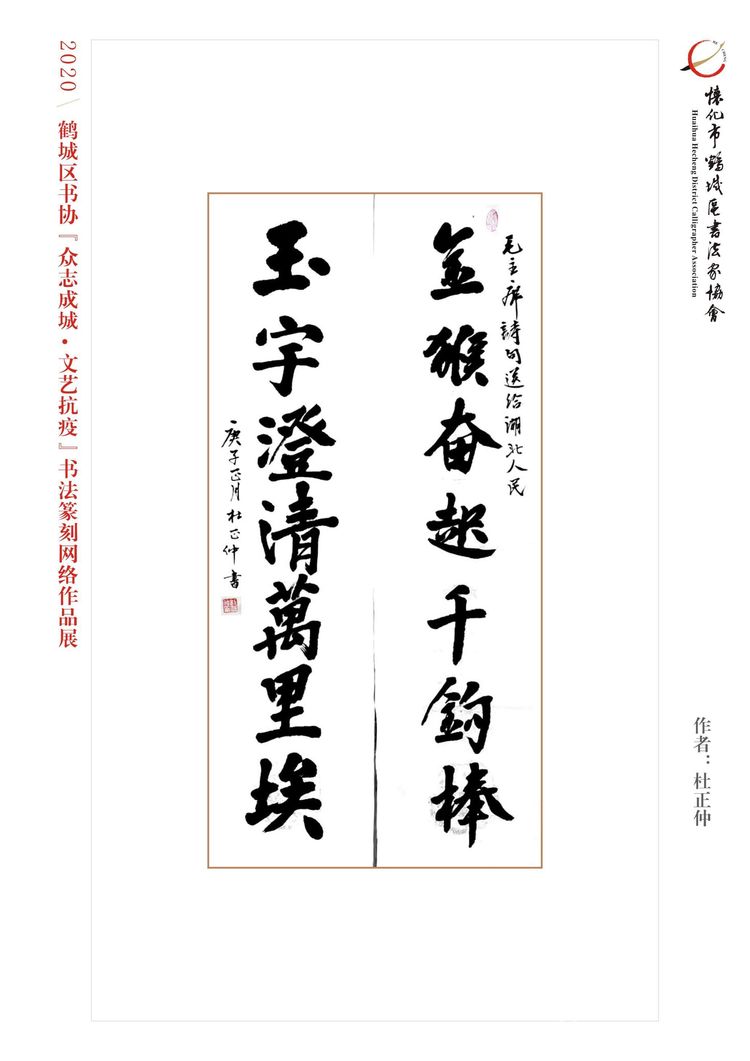 懷化市鶴城區書法家協會
Huaihua Hecheng District Calligrapher Association
2020 / 鹤城区书协『众志成城·文艺抗疫』书法篆刻网络作品展
毛主席詩句送给湖北人民
金猴奋起千鈞棒
玉宇澄清萬里埃
庚子正月杜正仲書
作者：杜正仲